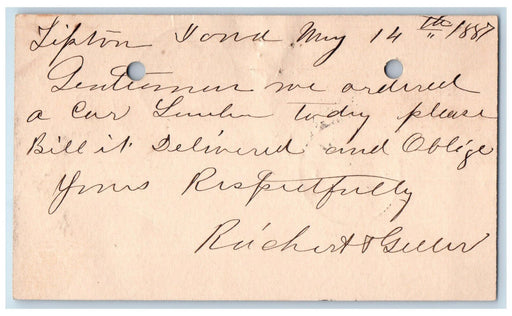 Tipton Iowa May 14th 1887
Gentlemen we ordered
a Car Lumber today please
Bill it Delivered and Oblige
Yours Respectfully
Reichert &